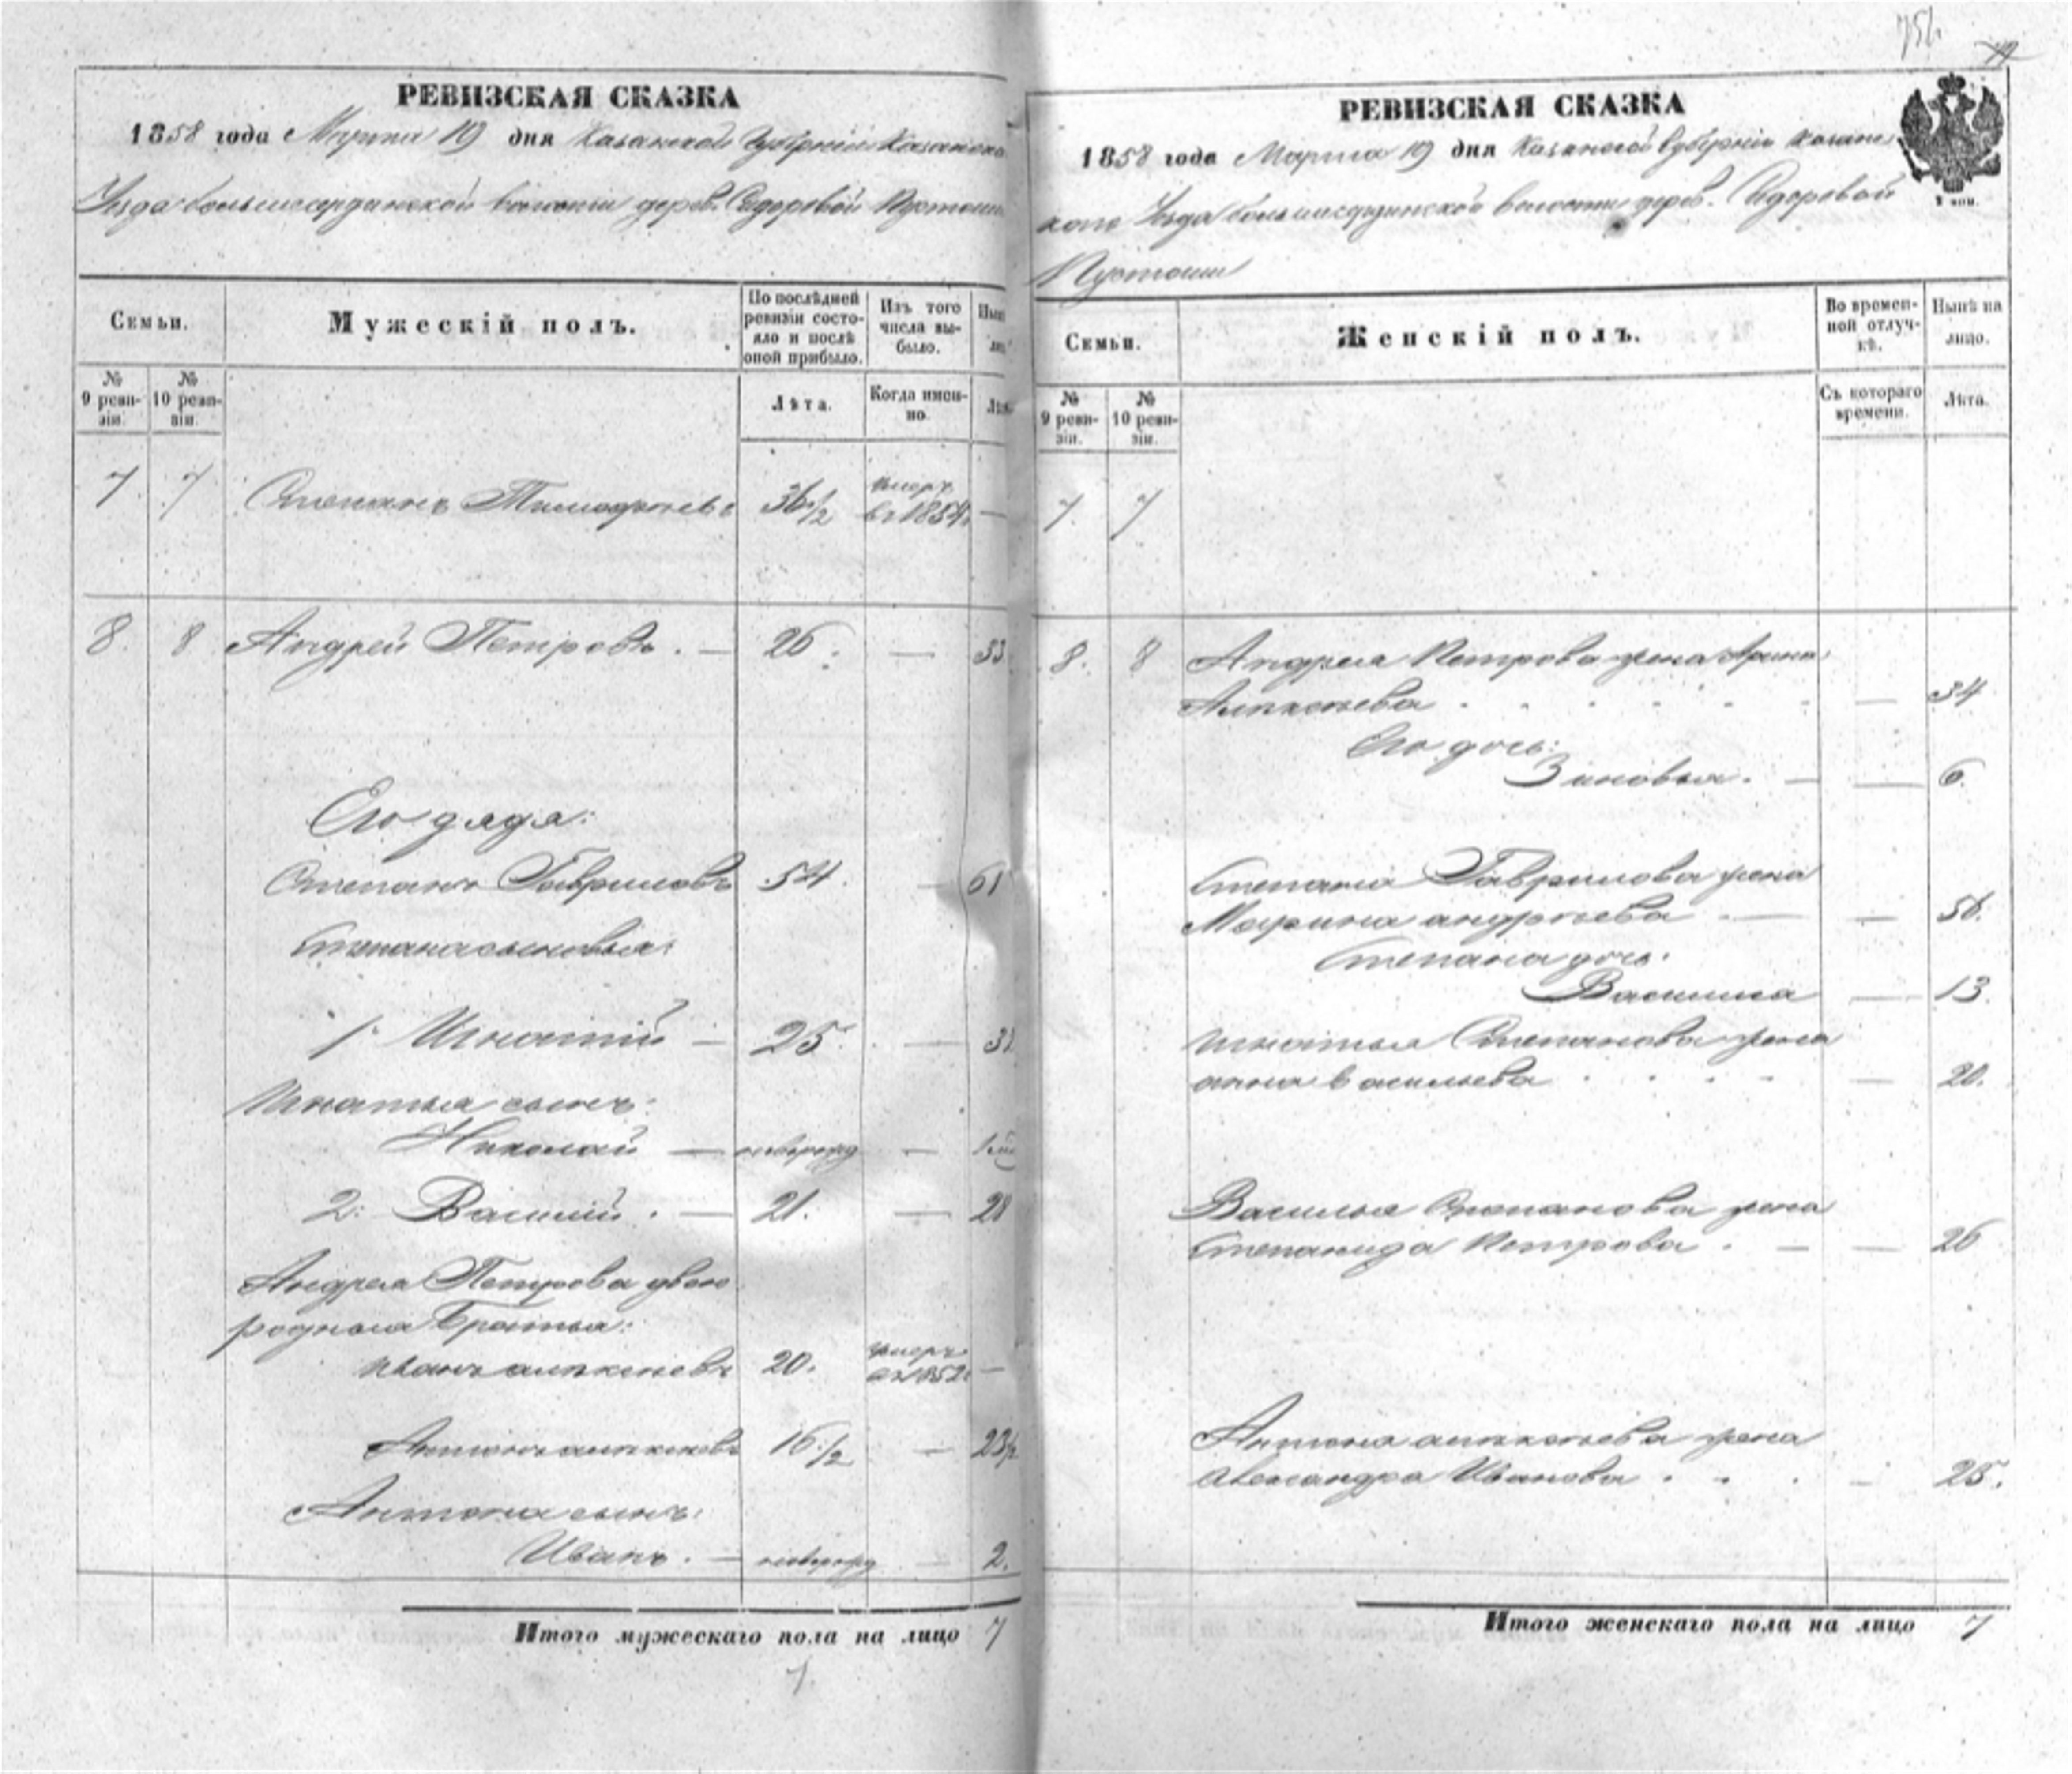 756.
РЕВИЗСКАЯ СКАЗКА
1858 года Марта 19 дня Казанской Губернии Казанска
Уезда большесердинской волости дерев. Сидоровой Пустоши
Семьи.
Мужескій полъ.
По послѣдней ревизіи состояло и послѣ оной прибыло.
Изъ того числа выбыло.
№ 9 ревизіи.
№ 10 ревизіи.
Лѣта.
Когда именно.
7. 7 Степанъ Тимофѣевъ 36 1/2 умеръ въ 1854. —
8. 8 Андрей Петровъ. — 26. — 33
Его дядя:
Степанъ Гавриловъ 54. — 61
Степана сыновья:
1. Игнатій — 25. — 32
Игнатья сынъ:
Николай — новорожд —
2. Василій. — 21. — 28
Андрея Петрова двою
родныя Братья:
Иванъ алексѣевъ 20. умеръ въ 1852. —
Антонъ алексѣевъ 16 1/2 — 23 1/2
Антона сынъ:
Иванъ. — новорожд — 2.
Итого мужескаго пола на лицо 7
7
РЕВИЗСКАЯ СКАЗКА
1858 года Марта 19 дня Казанской Губернии Казанс
каго Уезда большесердинской волости дерев. Сидоровой
Пустоши
Семьи.
Женскій полъ.
Во временной отлучкѣ.
Нынѣ на лицо.
№ 9 ревизіи.
№ 10 ревизіи.
Съ котораго времени.
Лѣта.
7. 7
8. 8 Андрея Петрова жена Арина
Алексѣева — 34
Его дочь:
Зиновья. — — 6.
Степана Гаврилова жена
Марина андрѣева — — 56.
Степана дочь:
Василиса — 13.
Игнатья Степанова жена
анна васильева — 20.
Василья Степанова жена
Степанида Петрова — — 26
Антона алексѣева жена
Александра Иванова — 25.
Итого женскаго пола на лицо 7